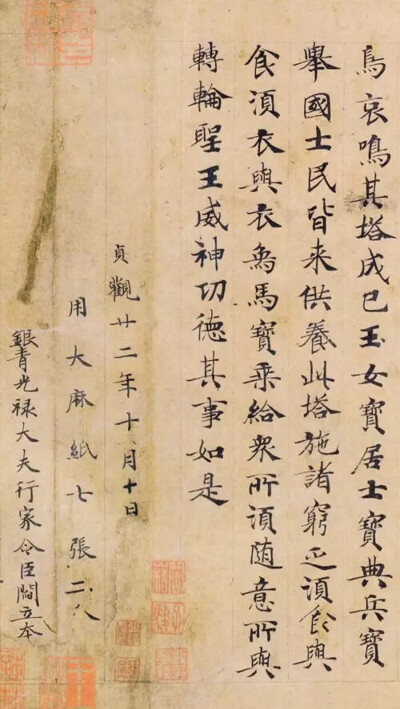 鳥哀鳴其塔成已玉女寶居士寶典兵寶
舉國士民皆来供養此塔施諸窮乏須食與
食須衣與衣象馬寶乘給衆所須随意所與
轉輪聖王威神功德其事如是
貞觀廿二年十月十日
用大麻紙七張二分
銀青光禄大夫行家令臣閻立本